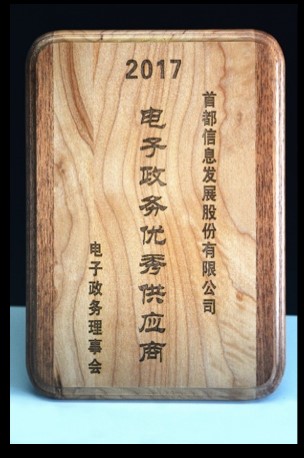 2017
首都信息发展股份有限公司
电子政务优秀供应商
电子政务理事会